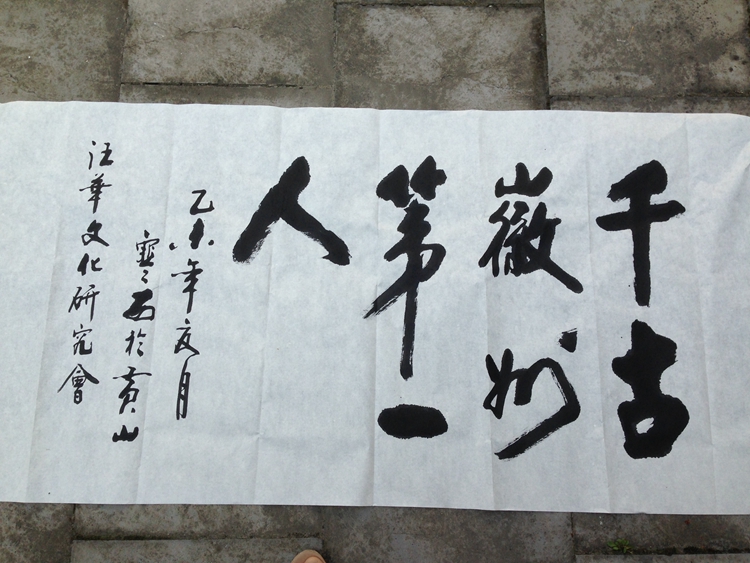 千古
徽州
第一
人
乙未年夏月
灵之书于黄山
汪華文化研究會